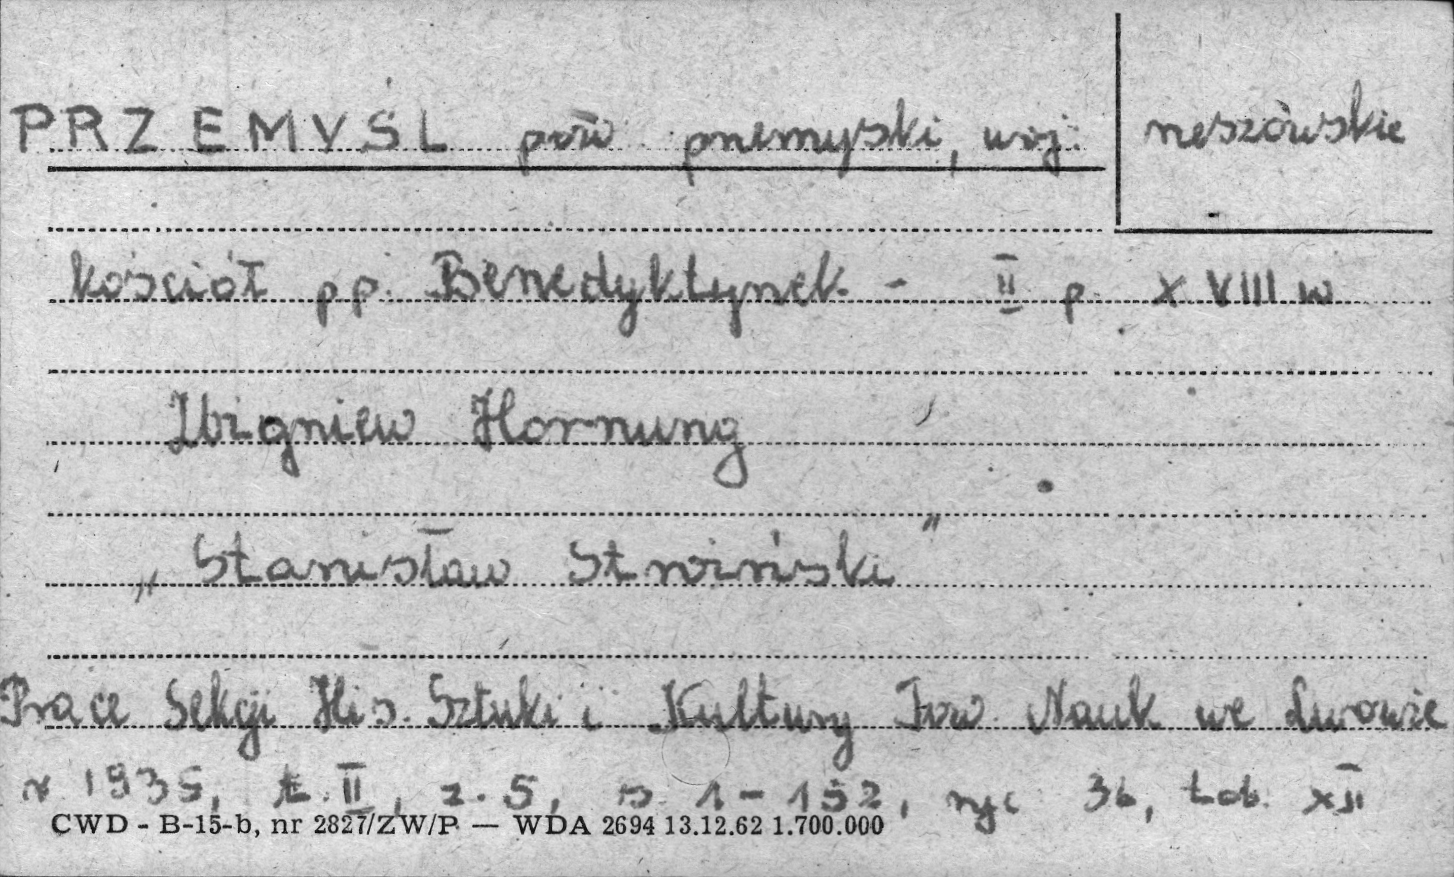 PRZEMYŚL pow. przemyski, woj. rzeszowskie
kościół pp. Benedyktynek - II p. XVIII w
Zbigniew Hornung
„Stanisław Stroiński”
Prace Sekcji His. Sztuki i Kultury Tow. Nauk we Lwowie
r 1935, t. II, z. 5, s. 1-152, ryc 36, tab. XII
CWD - B-15-b, nr 2827/ZW/P — WDA 2694 13.12.62 1.700.000